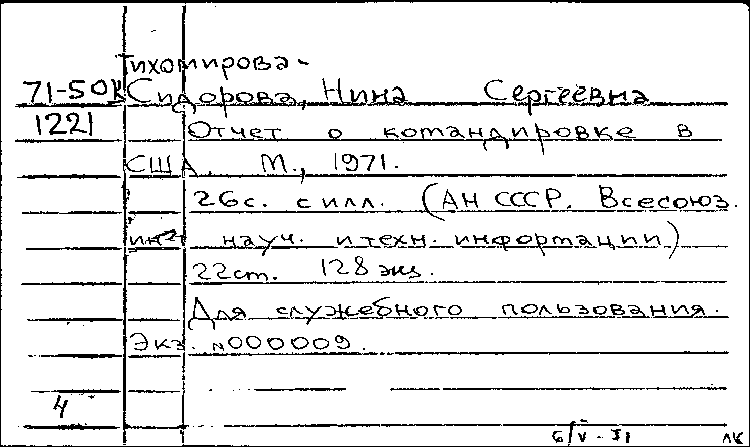 Тихомирова-
71-50к Сидорова, Нина Сергеевна
1221 Отчет о командировке в
США. М., 1971.
26с. с илл. (АН СССР. Всесоюз.
ин-т науч. и техн. информации)
22см. 128 экз.
Для служебного пользования.
Экз. №000009.
4
6/V-71 лк